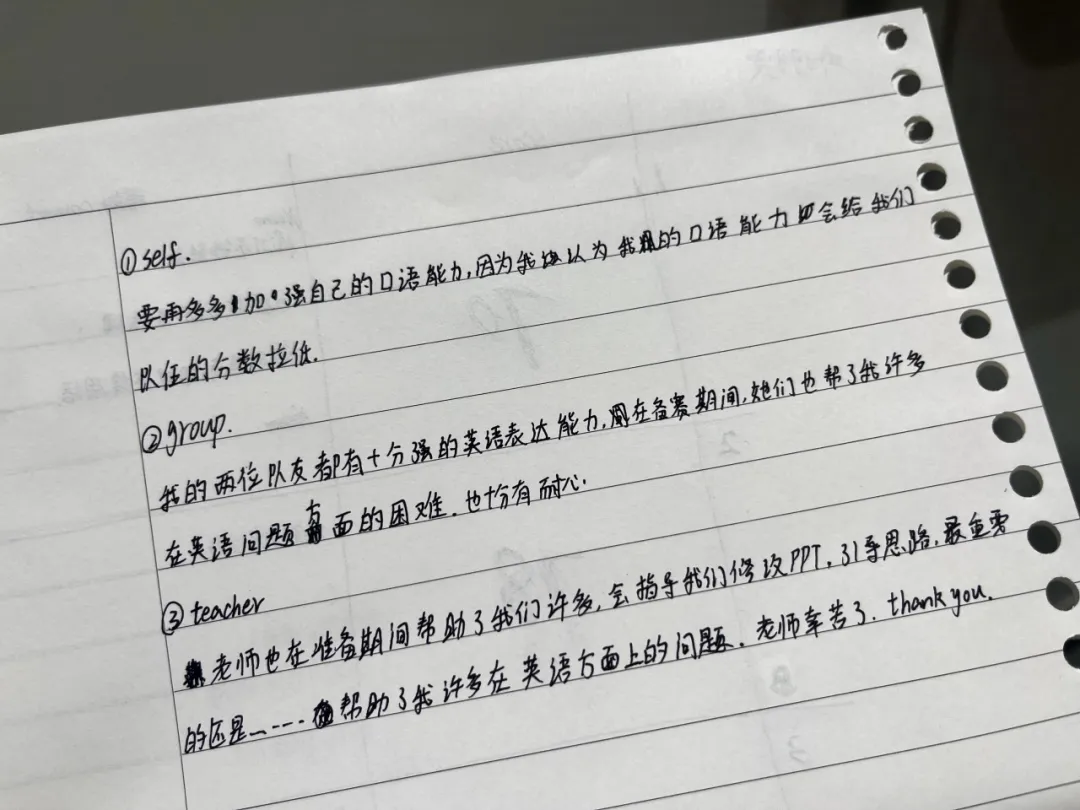 ①self.
要再多多加强自己的口语能力,因为我认为我的口语能力会给我们
队伍的分数拉低.
②group.
我的两位队友都有十分强的英语表达能力,在备赛期间,她们也帮了我许多
在英语问题方面的困难.也十分有耐心.
③teacher
老师也在准备期间帮助了我们许多,会指导我们修改PPT,引导思路,最重要
的还是……帮助了我许多在英语方面上的问题.老师幸苦了.thank you.